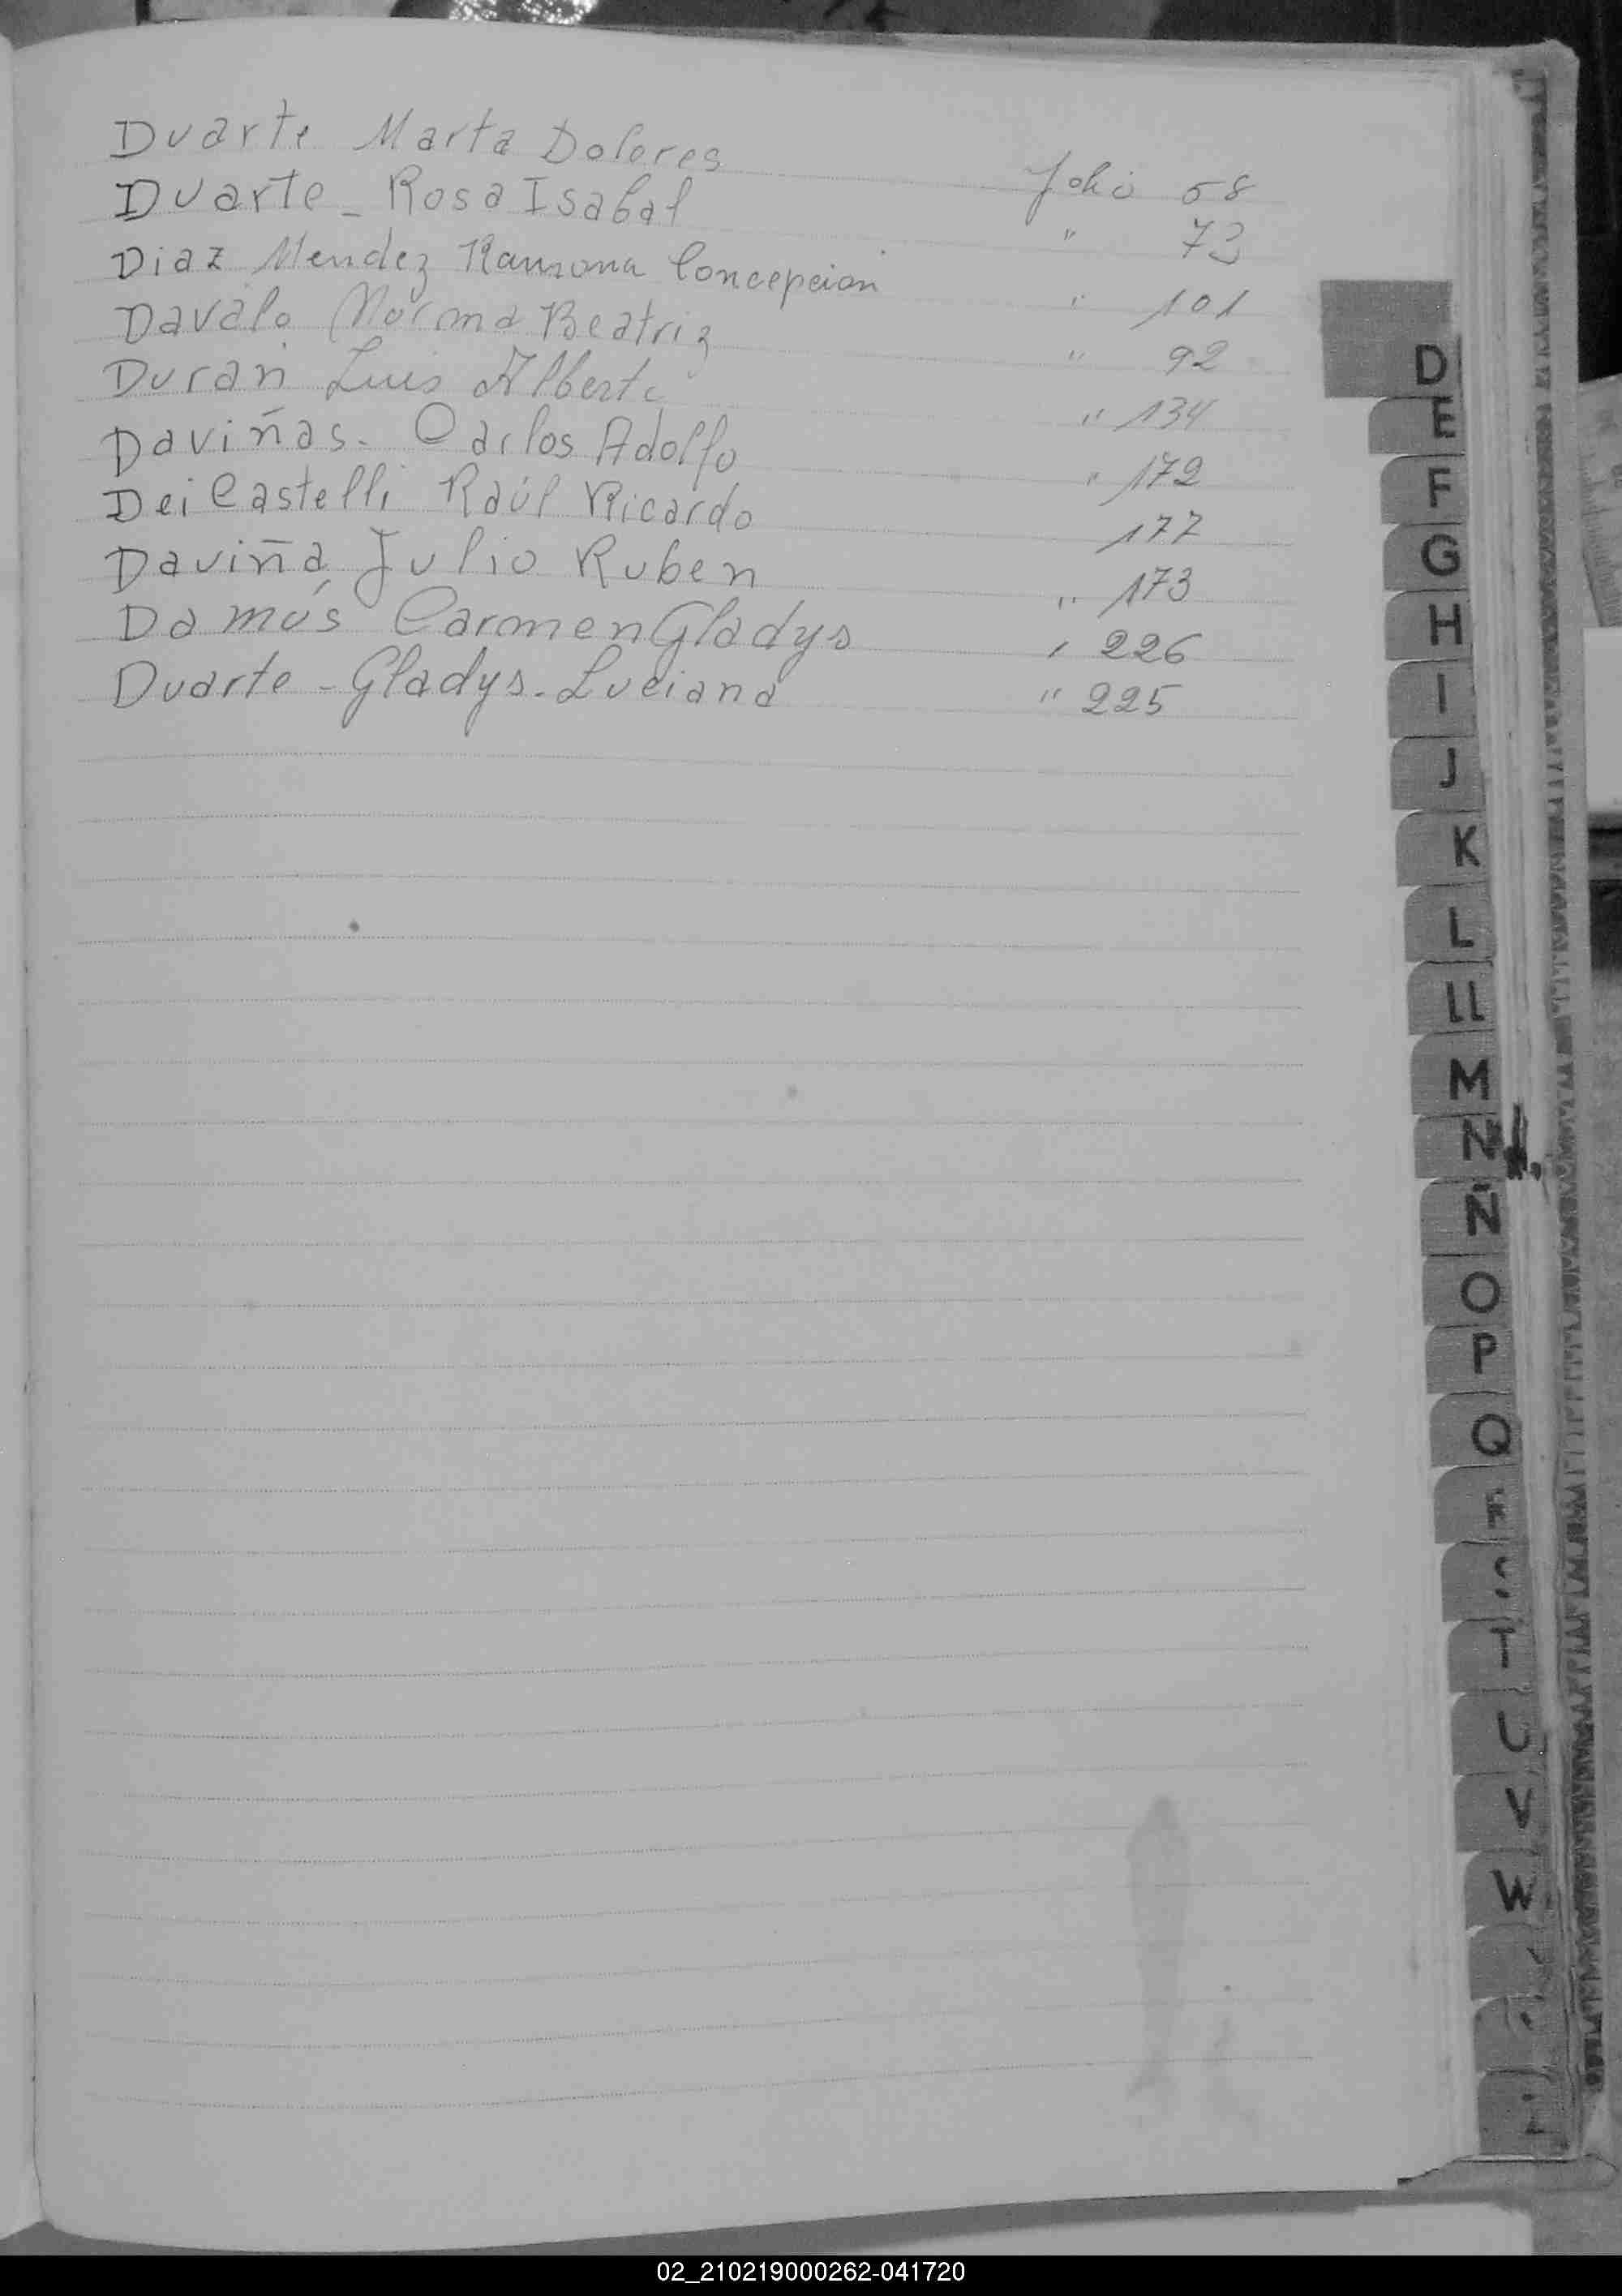 Duarte Marta Dolores folio 58
Duarte - Rosa Isabal " 73
Diaz Mendez Ramona Concepcion " 101
Davalo Norma Beatriz " 92
Duran Luis Alberto " 134
Daviñas - Carlos Adolfo " 172
Dei Castelli Raúl Ricardo 177
Daviña Julio Ruben " 173
Damús Carmen Gladys " 226
Duarte - Gladys - Luciana " 225
D
E
F
G
H
I
J
K
L
LL
M
N
Ñ
O
P
Q
T
U
V
W
02_210219000262-041720